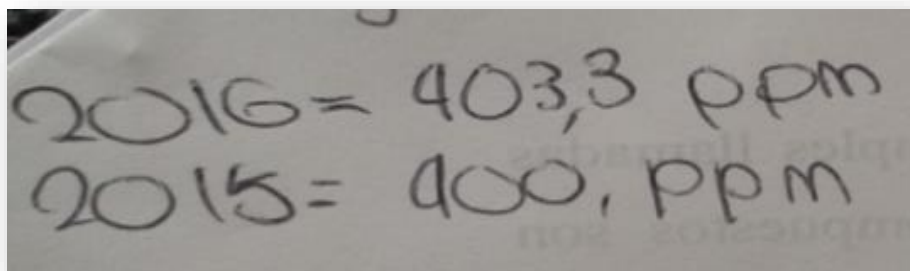 2016= 403,3 ppm
2015= 400, ppm